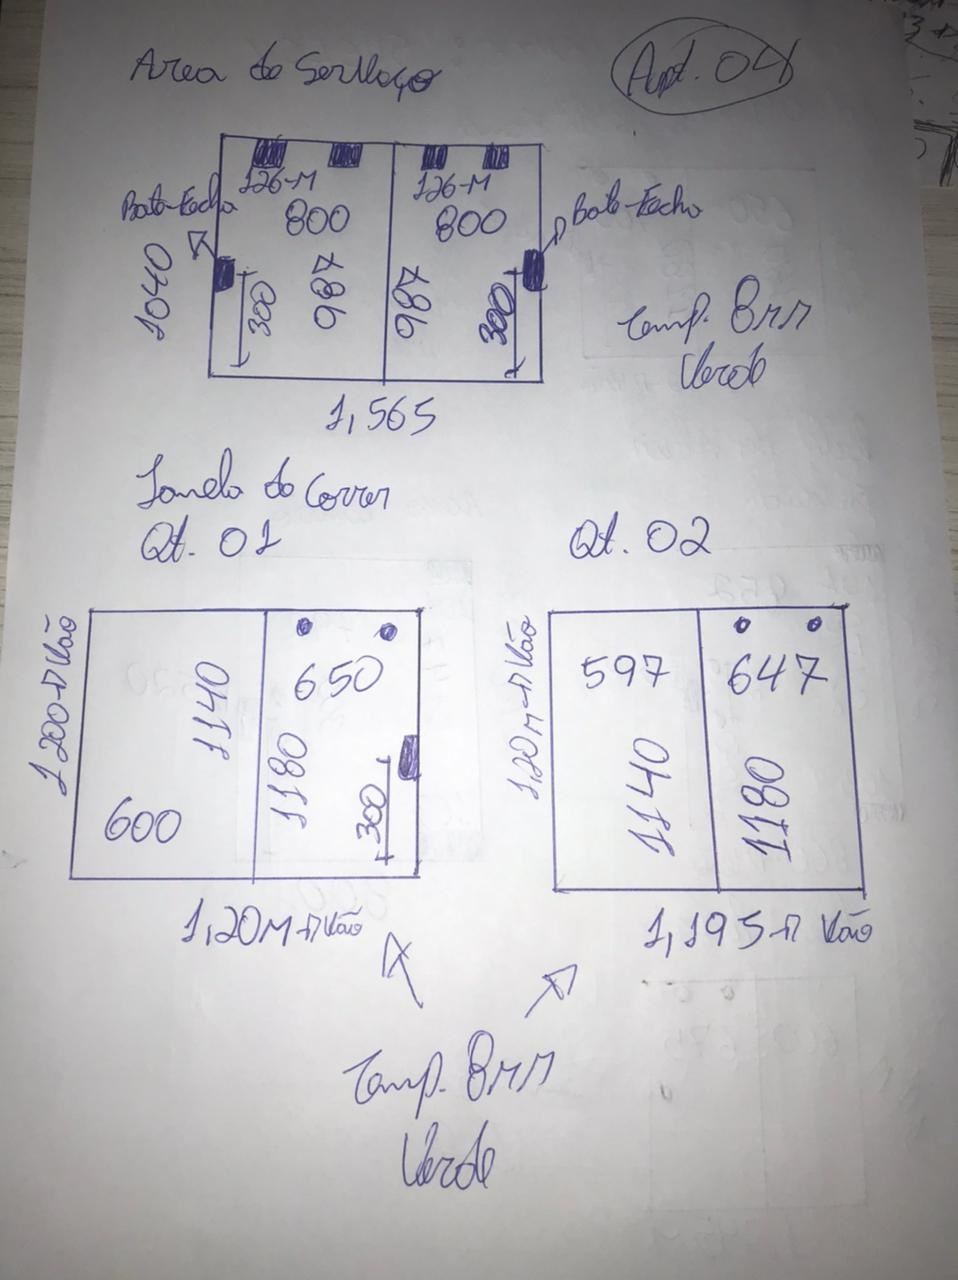 Area de Serviço
Apt. 04
126-M
126-M
Bate-Fecho
800
800
Bate-Fecho
1040
300
987
987
300
Temp. 8mm
Verde
1,565
Janela de Correr
Qt. 01
Qt. 02
1200-Vão
1140
650
1180
600
300
1,20M-Vão
1,20m-Vão
597
647
1140
1180
1,195-Vão
Temp. 8mm
Verde